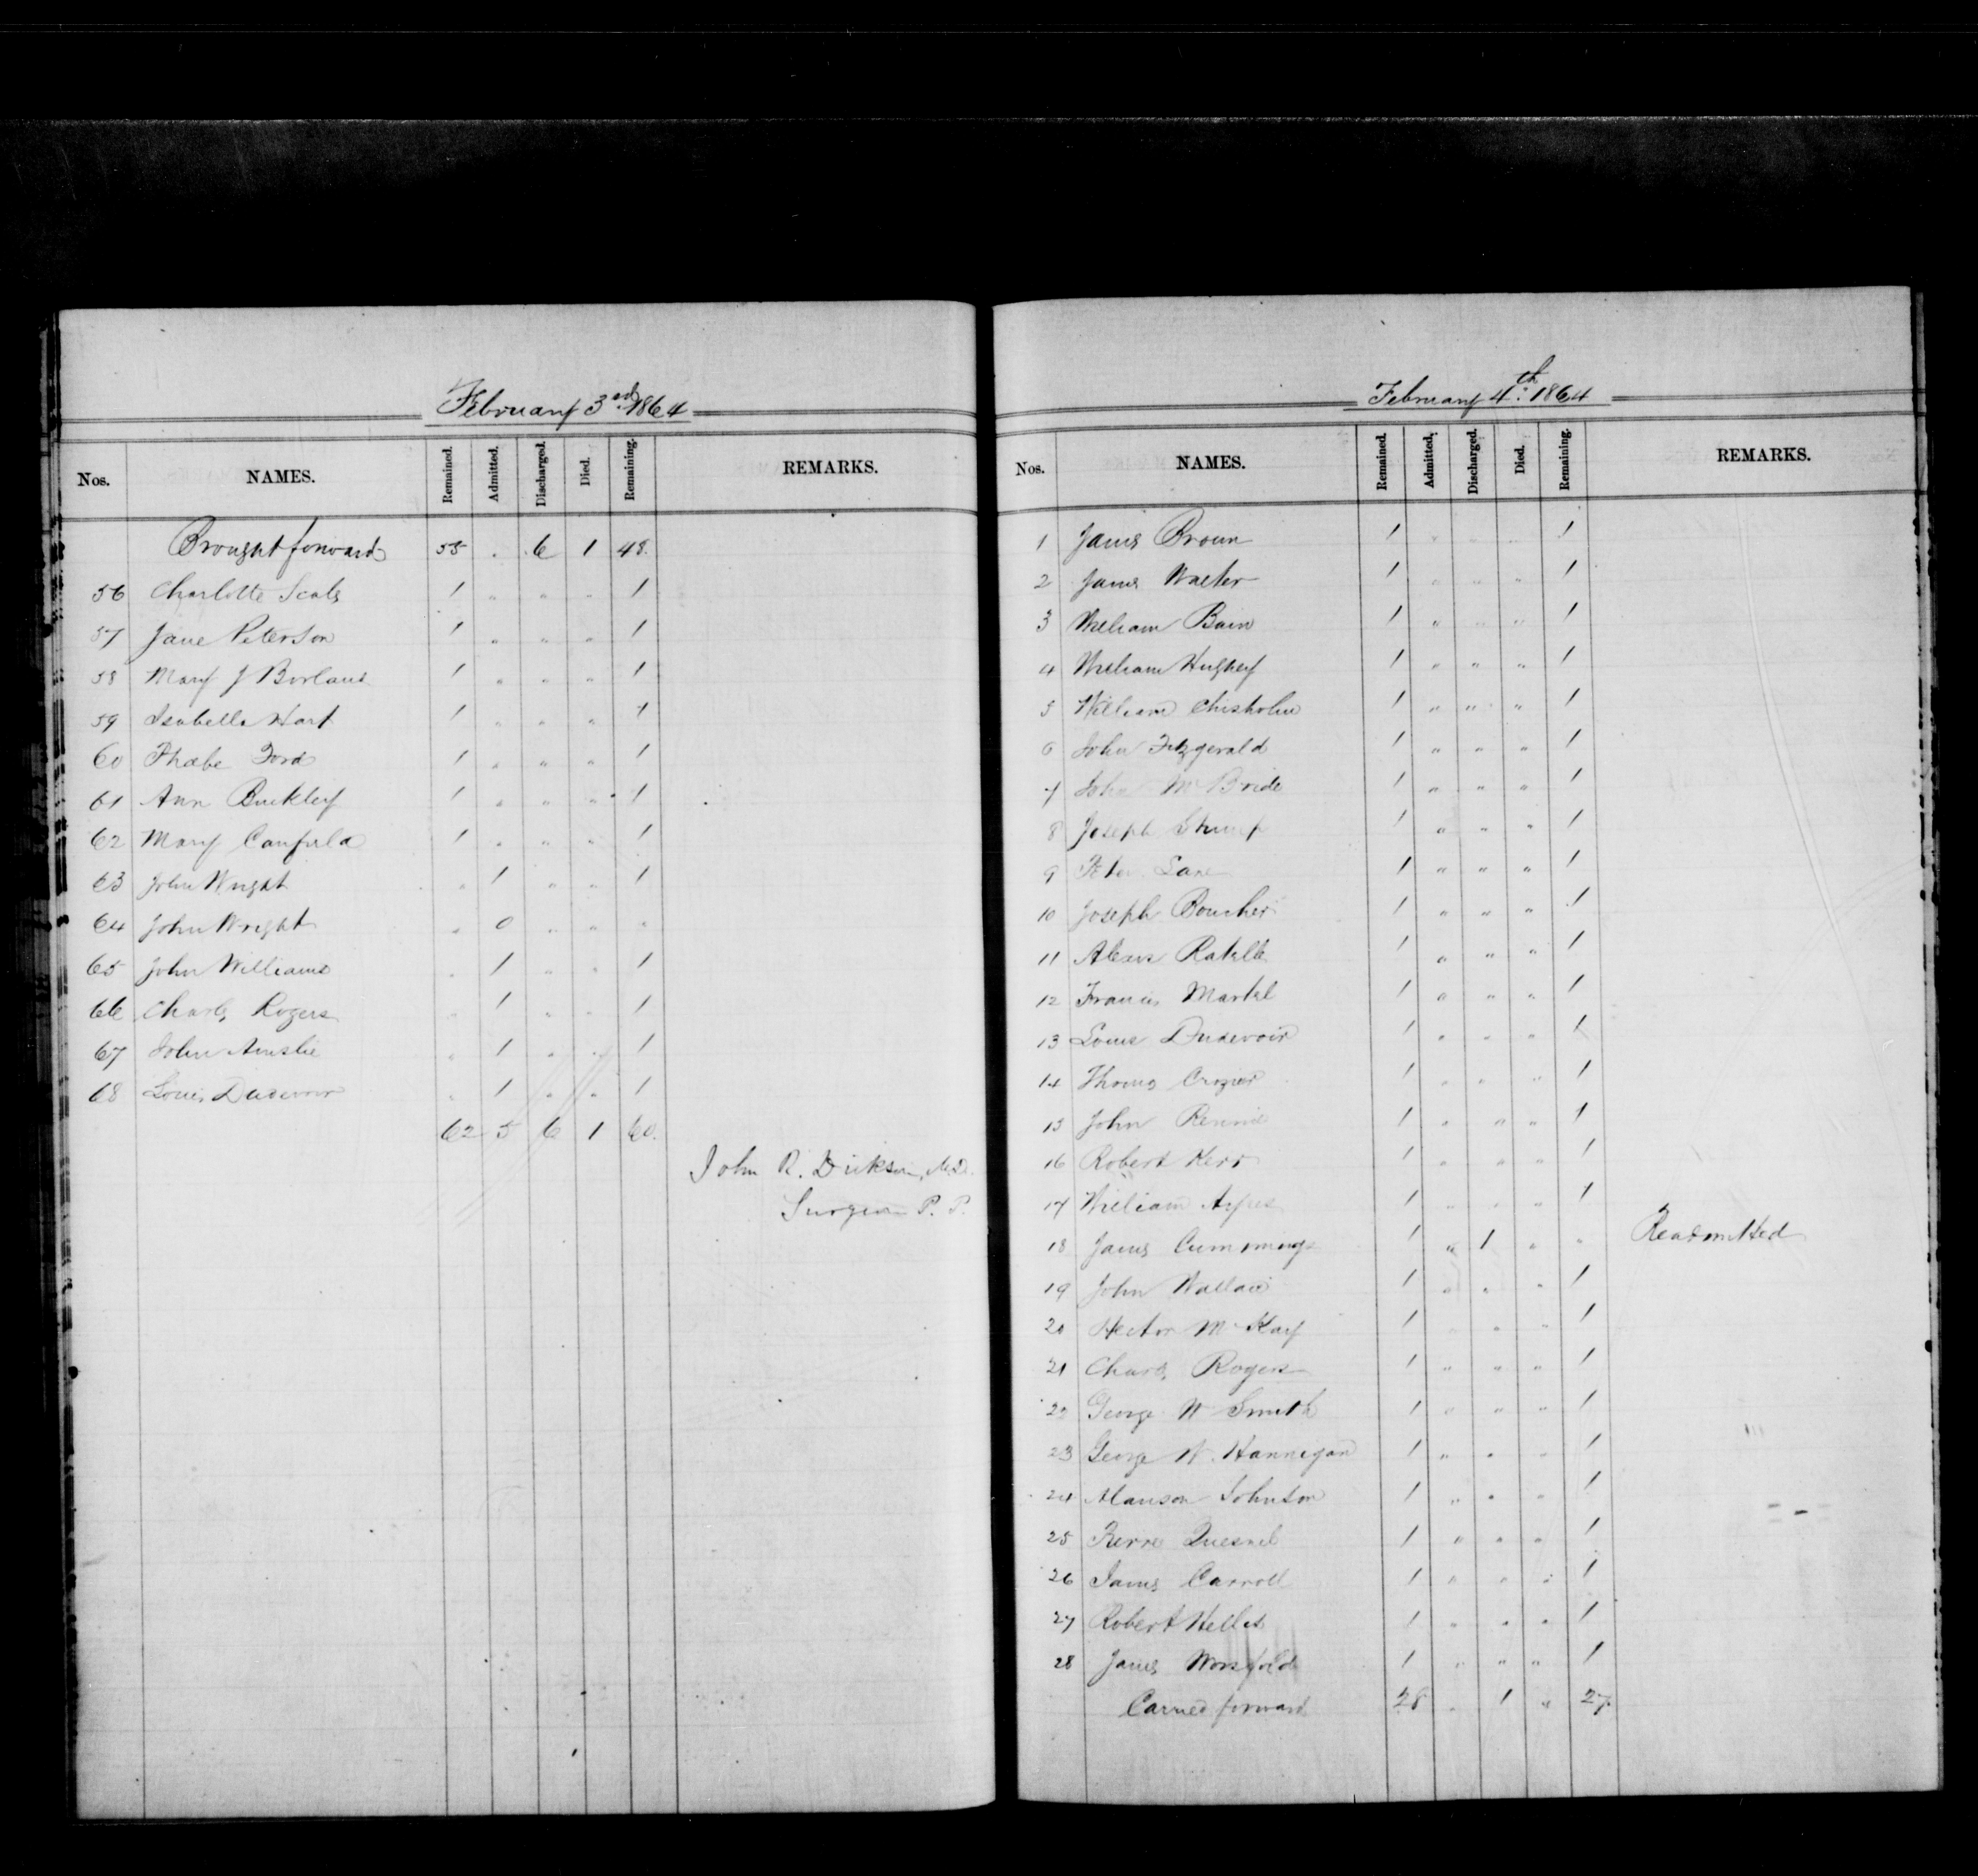 February 3rd 1864
Nos. NAMES. Remained. Admitted. Discharged. Died. Remaining. REMARKS.
Brought forward 55 . 6 1 48.
56 Charlotte Scals 1 " " " 1
57 Jane Peterson 1 " " " 1
58 Mary J Borland 1 " " " 1
59 Isabella Hart 1 " " " 1
60 Phœbe Ford 1 " " " 1
61 Ann Buckley 1 " " " 1
62 Mary Canfield 1 " " " 1
63 John Wright " 1 " " 1
64 John Wright " 0 " " "
65 John Williams " 1 " " 1
66 Charles Rogers " 1 " " 1
67 John Ainslie " 1 " " 1
68 Louis Dudevoir " 1 " " 1
62 5 6 1 60.
John R. Dickson, M.D.
Surgeon P. P.
February 4th 1864
Nos. NAMES. Remained. Admitted. Discharged. Died. Remaining. REMARKS.
1 James Brown 1 " " " 1
2 James Walter 1 " " " 1
3 William Bain 1 " " " 1
4 William Hughey 1 " " " 1
5 William Chisholm 1 " " " 1
6 John Fitzgerald 1 " " " 1
7 John McBride 1 " " " 1
8 Joseph Stump 1 " " " 1
9 Peter Lane 1 " " " 1
10 Joseph Boucher 1 " " " 1
11 Alexis Ratelle 1 " " " 1
12 Francis Martel 1 " " " 1
13 Louis Dudevoir 1 " " " 1
14 Thomas Crozier 1 " " " 1
15 John Rennie 1 " " " 1
16 Robert Kerr 1 " " " 1
17 William Ayres 1 " " " 1
18 James Cummings 1 " 1 " " Readmitted
19 John Wallace 1 " " " 1
20 Hector McKay 1 " " " 1
21 Charles Rogers 1 " " " 1
22 George W Smith 1 " " " 1
23 George W. Hannigan 1 " " " 1
24 Manson Johnson 1 " " " 1
25 Pierre Quesnel 1 " " " 1
26 James Carroll 1 " " " 1
27 Robert Welles 1 " " " 1
28 James Worsfold 1 " " " 1
Carried forward 28 . 1 " 27